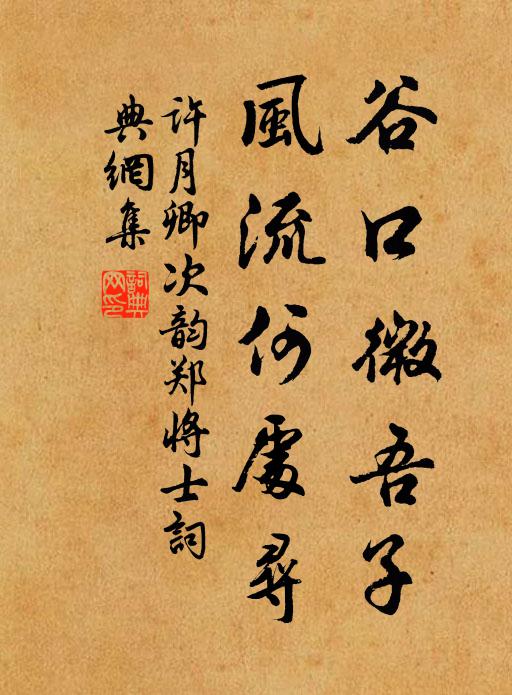 谷口微吾子
風流何處尋
許月卿次韵郑将士詞
典網集
詞典
网印